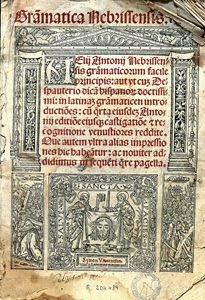 Grāmatica Nebrissensis.
Elij Antonij Nebrissen
sis grāmaticorum facile
principis: aut yt cuz Des
pauterio dicā hispanoꝝ doctissi
mi: in latinaz grāmaticen intro
ductiōes: cū qrta eiusdez Antonij
editiōe eiusqz castigatiōe ⁊ re
cognitione venustiores reddite.
Que autem vltra alias impressio
nes hic habeātur: ac nouiter ad
didimus in sequēti qre pagella.
SANCTA
R. 204484